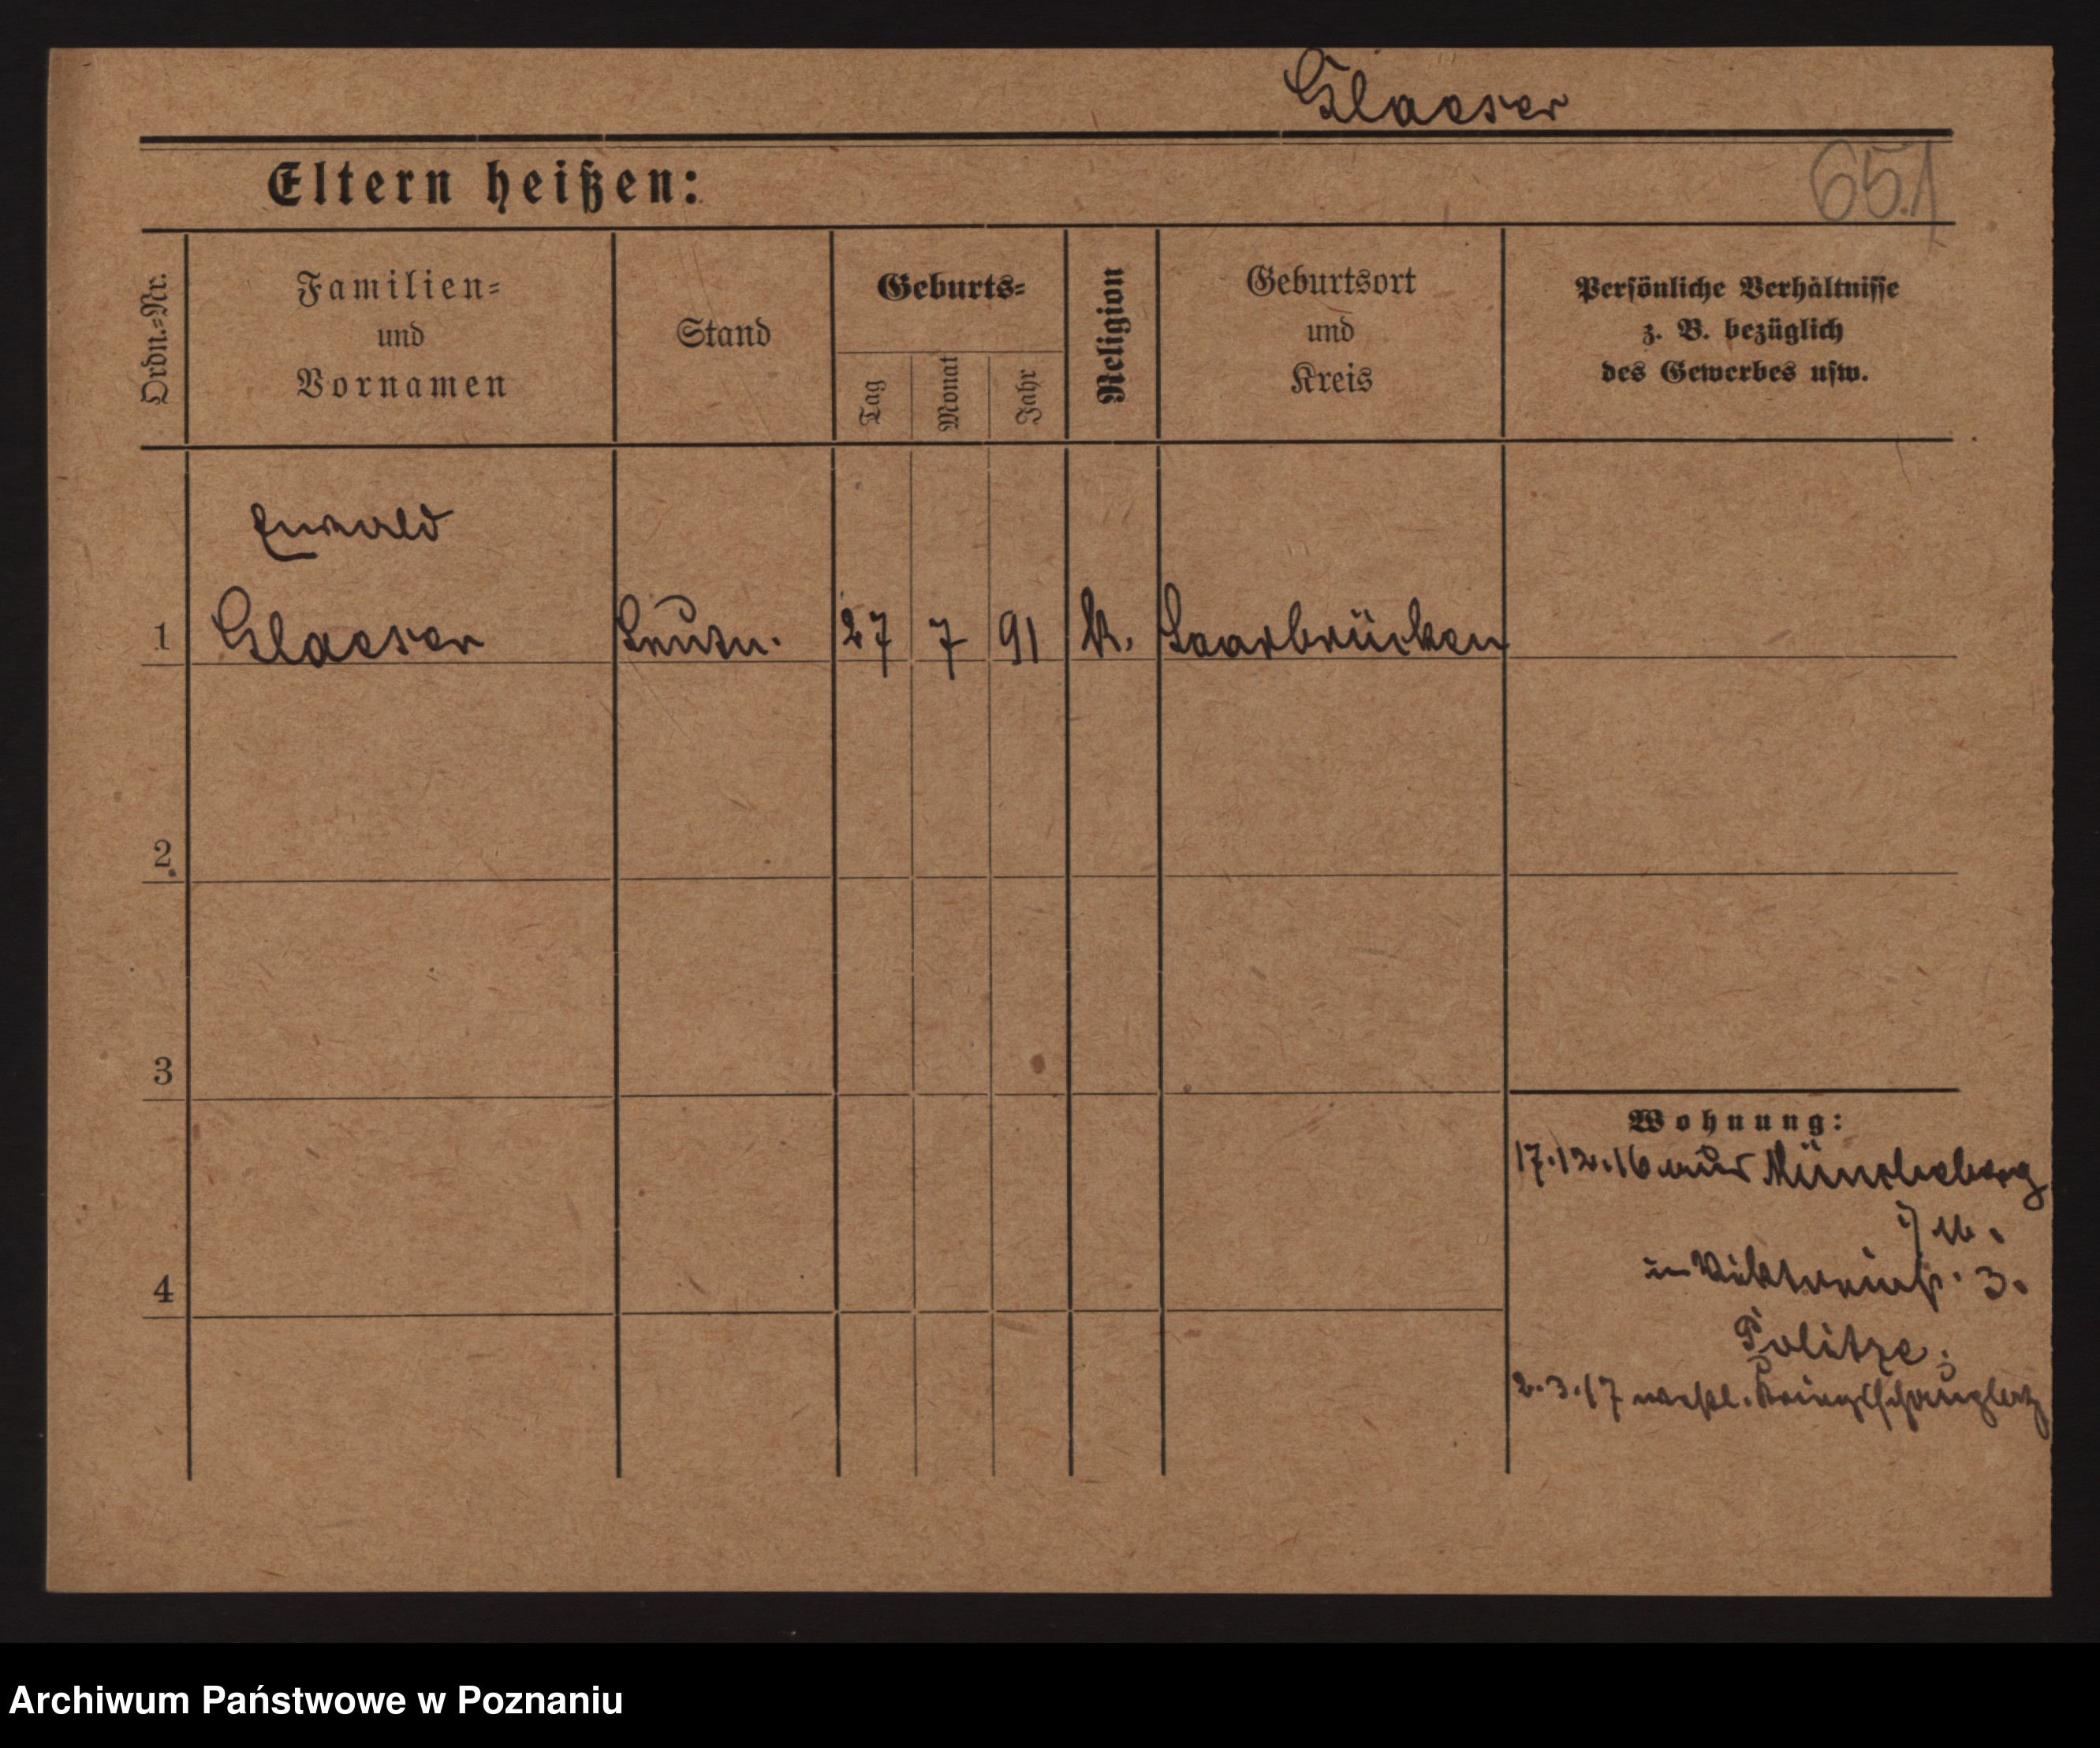 Glaeser
651
Eltern heißen:
Ordn.=Nr.
Familien=
und
Vornamen
Stand
Geburts=
Tag
Monat
Jahr
Religion
Geburtsort
und
Kreis
Persönliche Verhältnisse
z. B. bezüglich
des Gewerbes usw.
Ewald
1 Glaeser Leutn. 27 7 91 k. Saarbrücken
2
3
4
Wohnung:
17.12.16 aus Müncheberg
i/M.
in Viktoriastr. 3.
Politze.
2.3.17
Archiwum Państwowe w Poznaniu